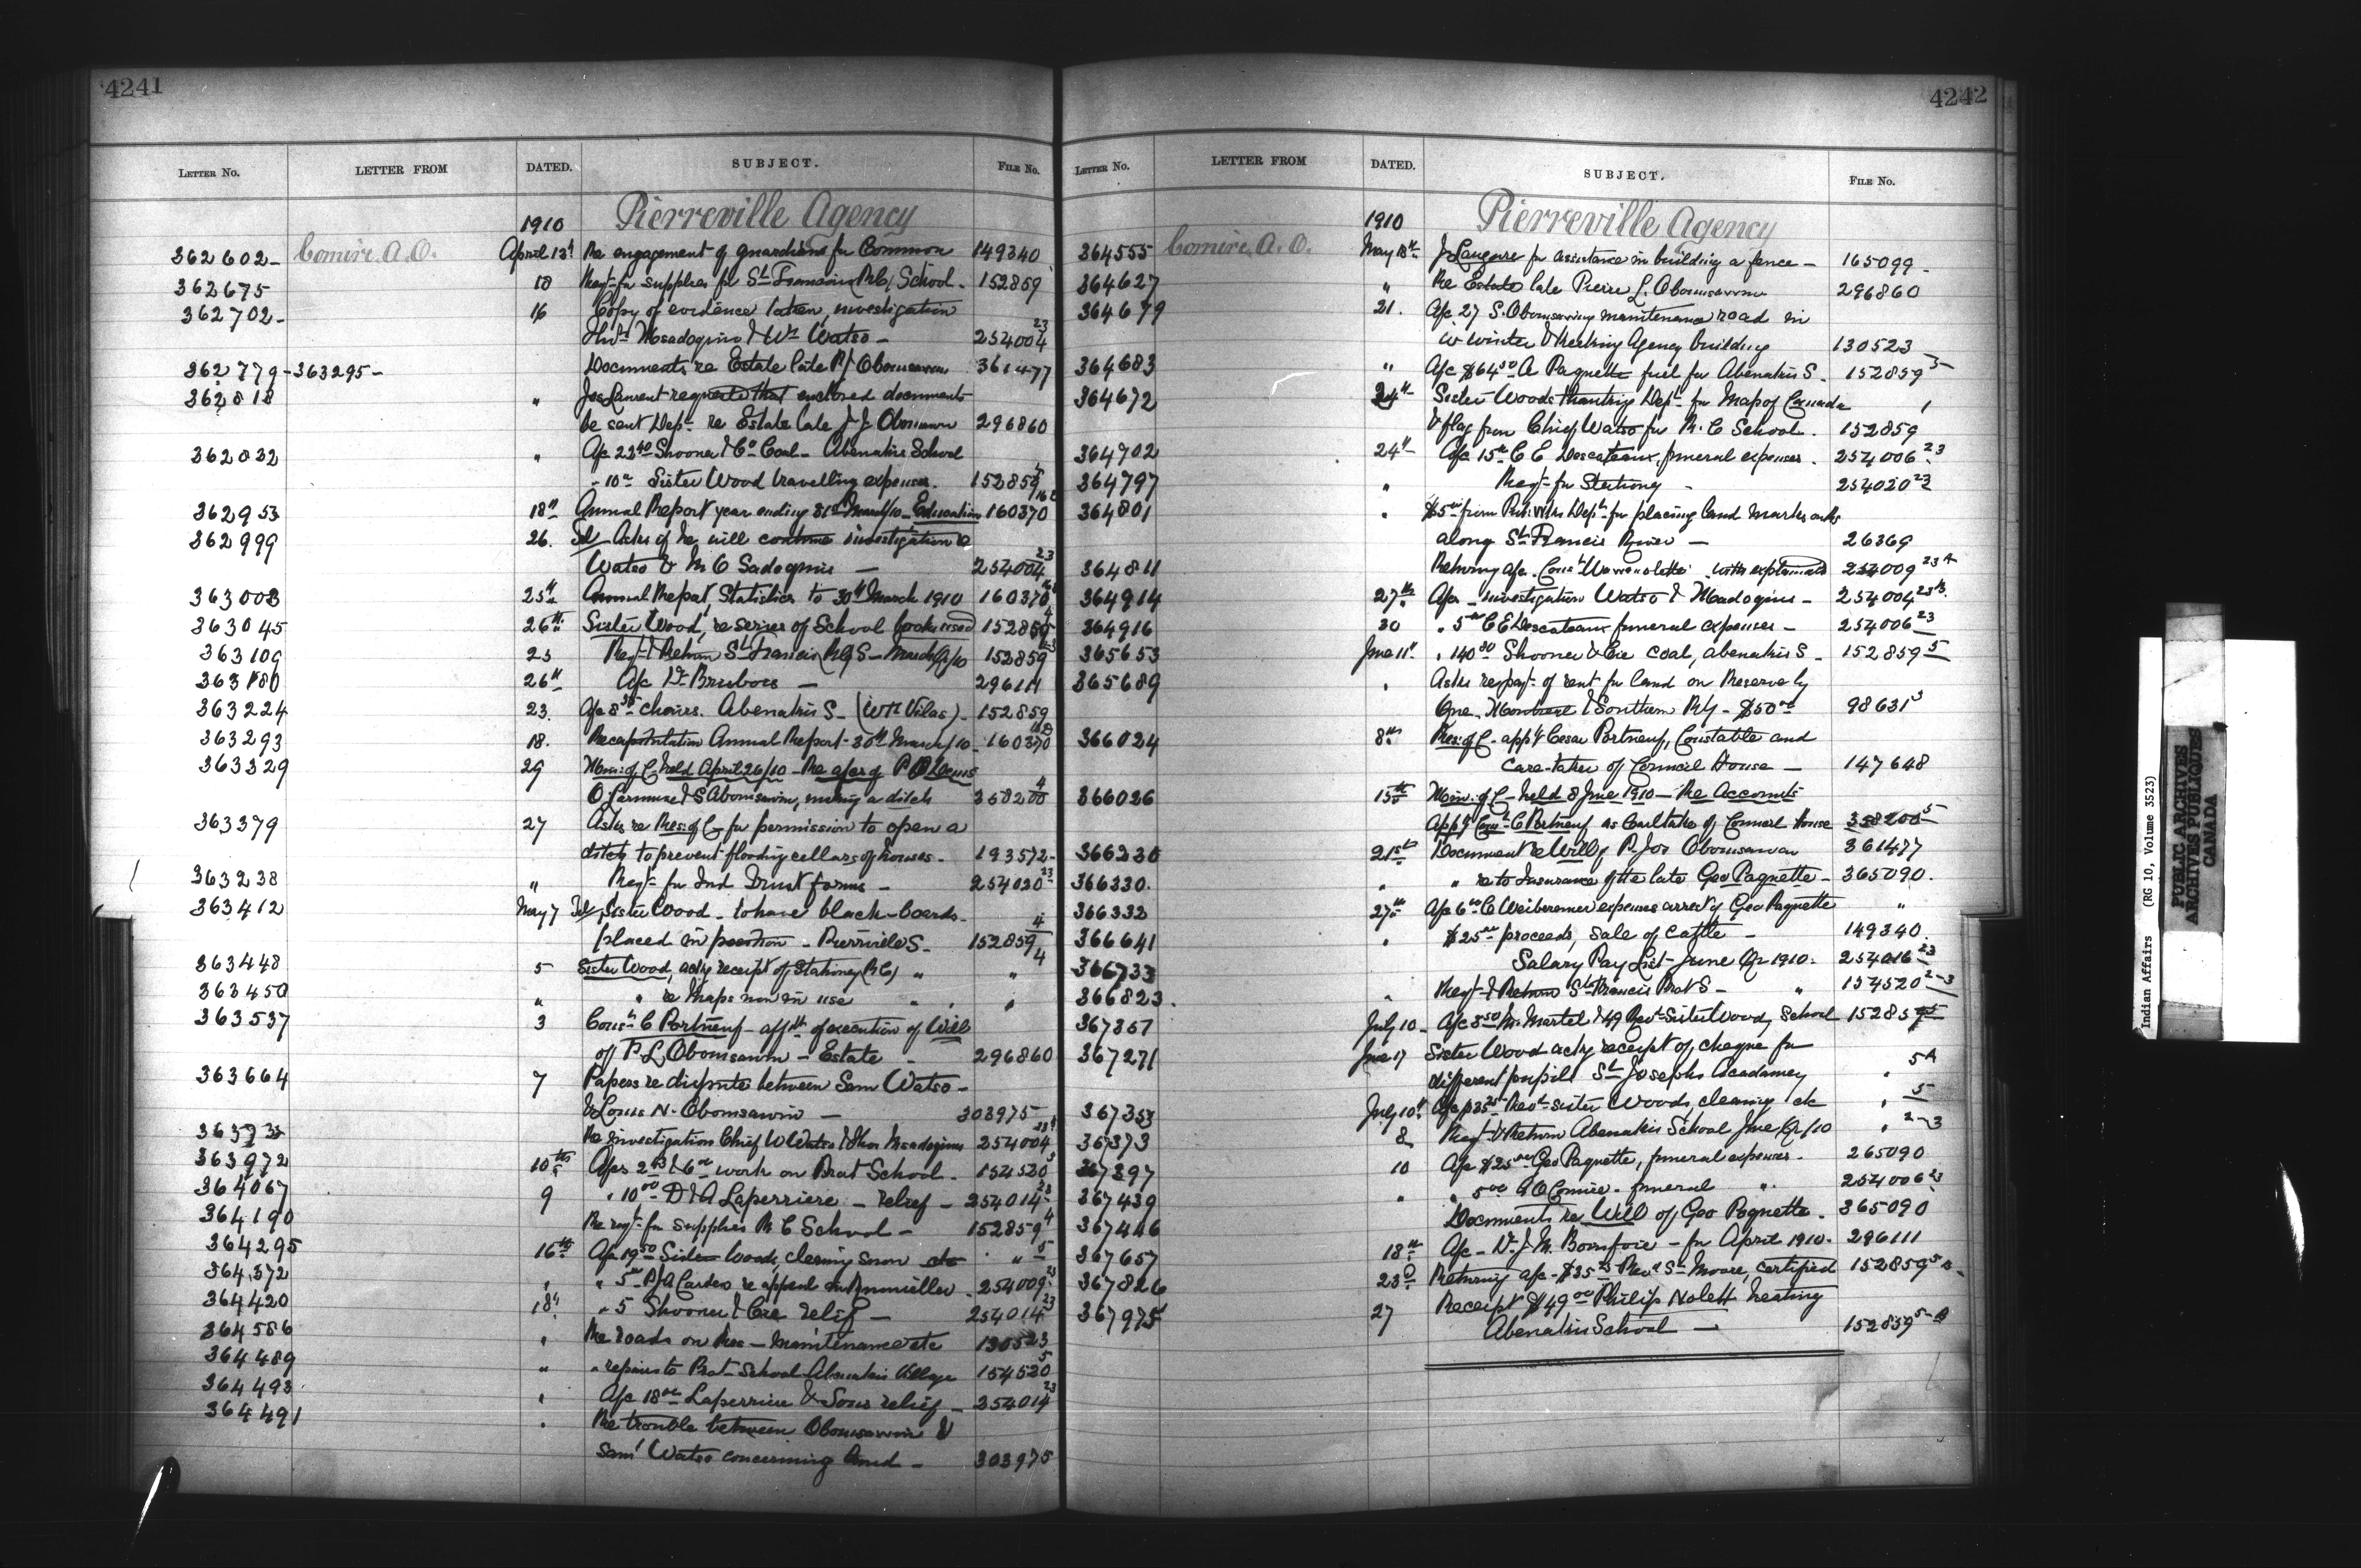 4241
LETTER NO. LETTER FROM DATED. SUBJECT. FILE NO.
1910 Pierreville Agency
362602 Comire A.O. April 13th Re engagement of guardians for Common 149340
362675 18 Reqt for supplies for St Francois R.C. School. 152859
362702 16 Copy of evidence taken, investigation
Msadoquis & Wm Watso 254004 23
362779-363295 Documents re Estate late P.J. Obomsawin 361477
362818 " Jos Laurent requests that enclosed documents
be sent Dept. re Estate late J.J. Obomsawin 296860
362832 " A/c Shooner & Co Coal Abenakis School
" 10 Sister Wood travelling expenses. 152859
362953 18th Annual Report year ending 31st March/10 Education 160370
362999 26. Tel Asks if he will continue investigation re
Watso & M.C. Sadoquis 254004 23
363003 25th Annual Report, Statistics to 30th March 1910 160370
363045 26th Sister Wood, re series of School books used 152859
363109 23 Reqt & Return St Francis R.C. S. March Qr/10 152859
363180 26th A/c Dr 296111
363224 23. A/c chairs. Abenakis S. (Wm Vilas) 152859
363293 18. Recapitulation Annual Report 30th March/10 160370
363329 29 Min: of C. held April 26/10 Re a/cs of
& S Obomsawin, making a ditch 358200 4
363379 27 Asks re Res: of C. for permission to open a
ditch to prevent flooding cellars of houses. 193572
363238 " Reqt for Ind Trust forms 254020 23
363412 May 7 Tel Sister Wood to have black-boards
placed in position Pierreville S. 152859 4
363448 5 Sister Wood, ackg receipt of Stationery (R.C.) " " 4
363450 " " re Maps now in use " "
363537 3 Const C Portneuf affdt of execution of Will
of P.L. Obomsawin Estate 296860
363664 7 Papers re dispute between Sam Watso
& Louis N. Obomsawin 303975
Re investigation Chief W Watso & Thos Msadoquis 254004
363972 10th A/cs & work on Prot School. 154520 3
364067 9 " 10 00 D & A Laperriere relief 254014 23
364190 Re reqt for supplies R C School 152859 4
364295 16th A/c 19 50 Sister Woods, clearing snow etc " 5
364372 " " 5 254009 23
364420 18th " 5 Shooner & Cie relief 254014 23
364586 " Re roads on Res Maintenance etc 130523
364489 " " repairs to Prot School Abenakis Village 154520 5
364493 " A/c 18 Laperriere & Sons relief 254014 23
364491 " Re trouble between Obomsawin &
Saml Watso concerning land 303975
4242
LETTER NO. LETTER FROM DATED. SUBJECT. FILE NO.
1910 Pierreville Agency
364555 Comire A.O. May 18th for assistance in building a fence 165099
364627 " Re Estate late Pierre L. Obomsawin 296860
364679 21. A/c 27 S. Obomsawin maintenance road in
winter & heating Agency building 130523
364683 " A/c $64 50 A Paquette fuel for Abenakis S. 152859 5
364672 24th Sister Woods thanking Dept for Map of Canada
& flag from Chief Watso for R.C School. 152859
364702 24th A/c 15 C E Descateaux, funeral expenses. 254006 23
364797 " Reqt for Stationery 254020 23
364801 " $5 from Pub. Wks Dept for placing land marks
along St Francis River 26369
364811 Returng a/c. Const 254009 23A
364914 27th A/cs investigation Watso & Msadoquis 254004 23
364916 30 " 5 C E Descateaux funeral expenses 254006 23
365653 June 11th " 140 80 Shooner & Cie coal, Abenakis S. 152859 5
365689 " Asks re payt of rent for land on Reserve by
Que. Montreal & Southern Rly $50 00 98631 3
366024 8th Res: of C. appg Cesar Portneuf, Constable and
Care-taker of Council House 147648
366026 15th Min: of C. held 8 June 1910 Re Accounts
Appg Const C Portneuf as Caretaker of Council House 358200 5
366230 21st Document re Will of P. Jos Obomsawin 361477
366330. " " re to Insurance of the late Geo Paquette 365090.
366332 27th A/c 6 C expenses arrest of Geo Paquette "
366641 " $25 proceeds, sale of cattle 149340.
366733 Salary Pay List June Qr 1910. 254016 23
366823. " Reqt & Return St Francis Prot S " 154520 2-3
367357 July 10 A/c Martel & 49 Revd Sister Wood, School 152859 5
367271 June 17 Sister Wood ackg receipt of cheque for
different pupils St Josephs Acadamey " 5A
367353 July 10th Revd Sister Woods, cleaning etc " 5
367373 8 Reqt & Return Abenakis School June Qr/10 " 2-3
367397 10 A/c $25 Geo Paquette, funeral expenses. 265090
367439 " " 5 00 A O Comire. funeral " 254006 23
367446 Documents re Will of Geo Paquette. 365090
367657 18th A/c Dr J.M. for April 1910. 296111
367826 23d Returng a/c $35 Revd St Moore, certified 152859 5
367975 27 Receipt $49 00 Philip Nolett heating
Abenakis School 152859 5
Indian Affairs (RG 10, Volume 3523)
PUBLIC ARCHIVES
ARCHIVES PUBLIQUES
CANADA